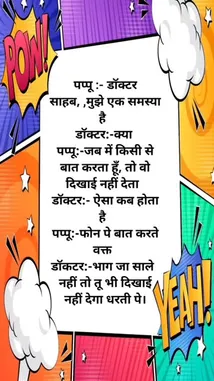 POW!
पप्पू :- डॉक्टर
साहब, ,मुझे एक समस्या
है
डॉक्टर:-क्या
पप्पू:-जब में किसी से
बात करता हूँ, तो वो
दिखाई नहीं देता
डॉक्टर:- ऐसा कब होता
है
पप्पू:-फोन पे बात करते
वक्त
डॉकटर:-भाग जा साले
नहीं तो तू भी दिखाई
नहीं देगा धरती पे।
YEAH!